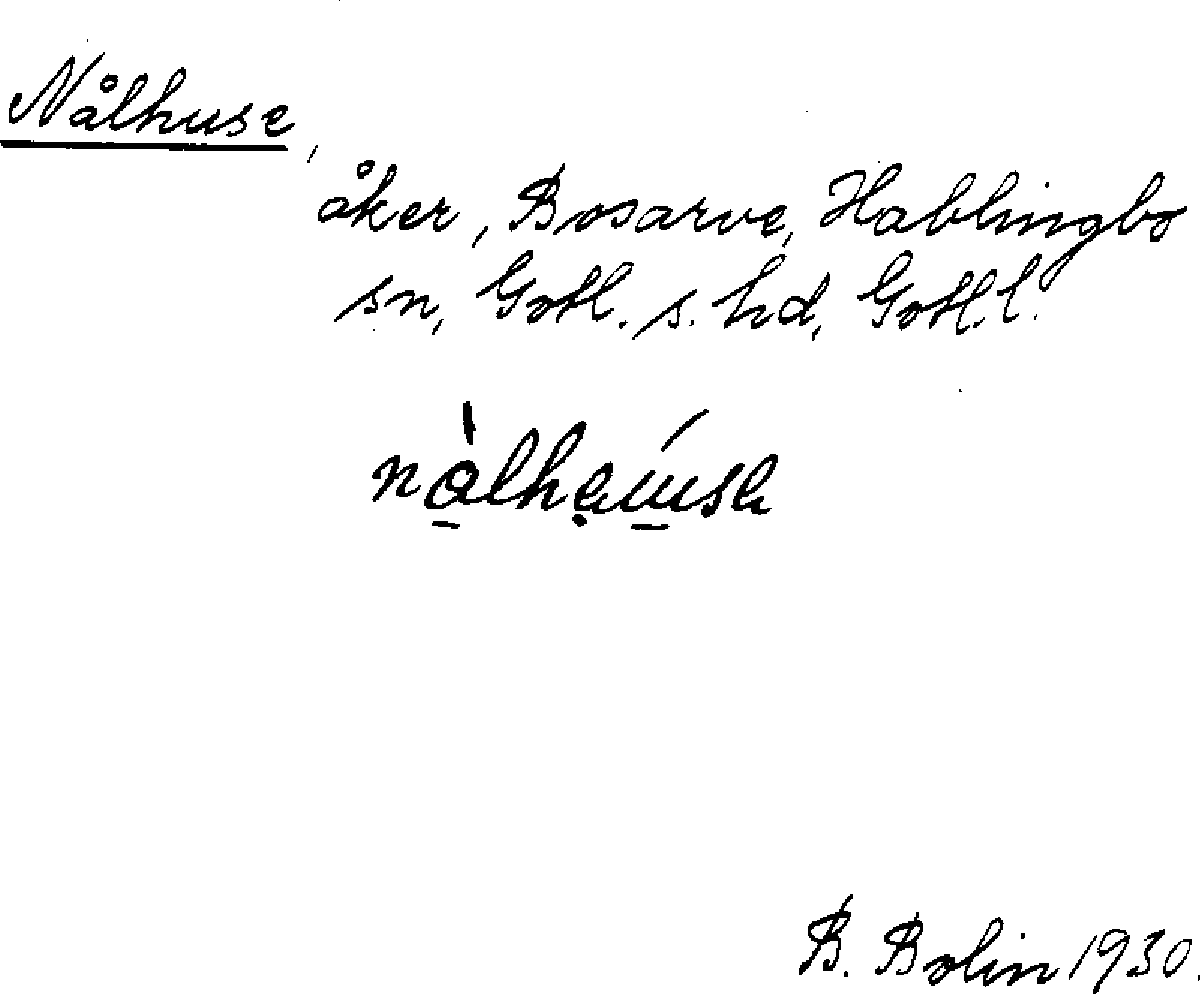 Nålhuse,
åker, Bosarve, Hablingbo
sn, Gotl. s. hd, Gotl. l.
B. Bolin 1930.